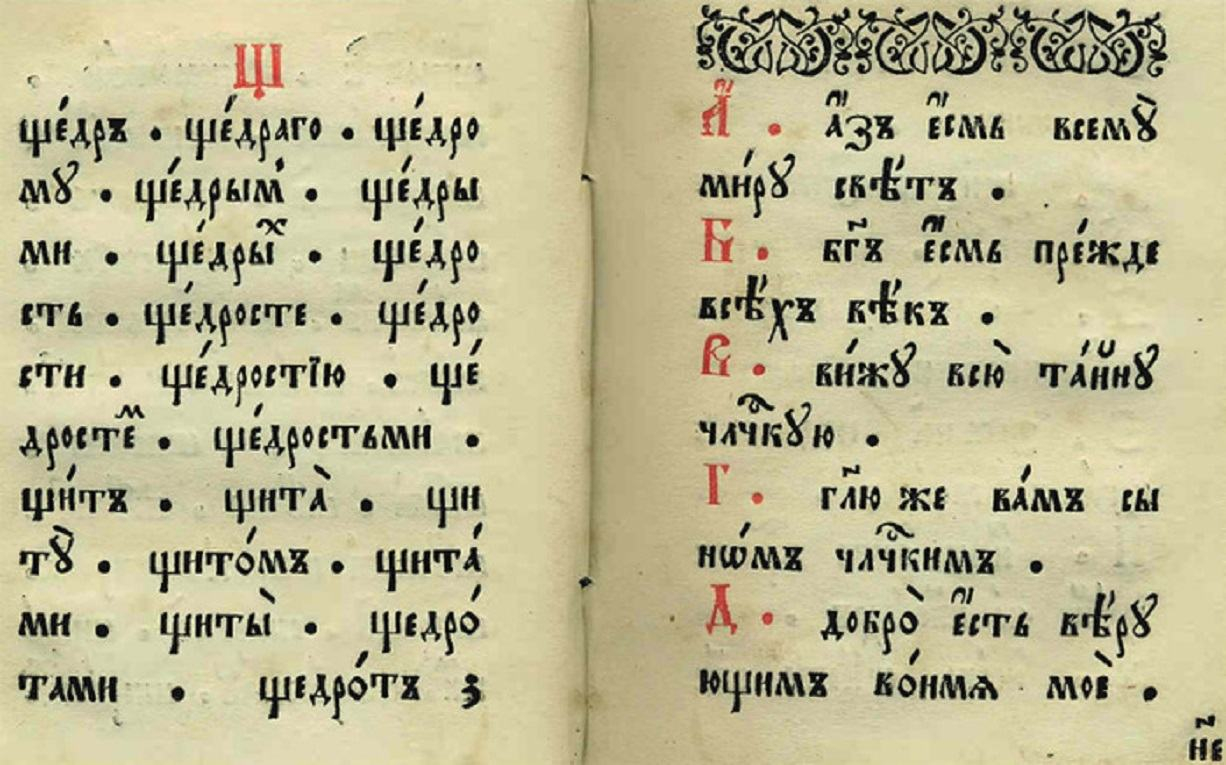 Щ
ще́дръ . ще́драго . ще́дро
мꙋ . ще́дрым̾ . ще́дры
ми . ще́дрыⷯ . ще́дро
сть . ще́дросте . ще́дро
сти . ще́дростїю . ще́
дростеⷨ . ще́дростьми .
щи́тъ . щита̀ . щи
тꙋ̀ . щито́мъ . щита́
ми . щиты̀ . щедро́
тами . щедро́тъ ;
А҆́ . а҆́зъ є҆́смь всемꙋ̀
ми́рꙋ свѣ́тъ .
Б . бг҃ъ є҆́смь пре́жде
всѣ́хъ вѣ́къ .
В . ви́жꙋ всю̀ та́йнꙋ
чл҃чкꙋю .
Г . гл҃ю же ва́мъ сы
нѡ́мъ чл҃чкимъ .
Д . добро̀ є҆́сть вѣ́рꙋ
ющимъ во́имѧ моѐ .
н҃е